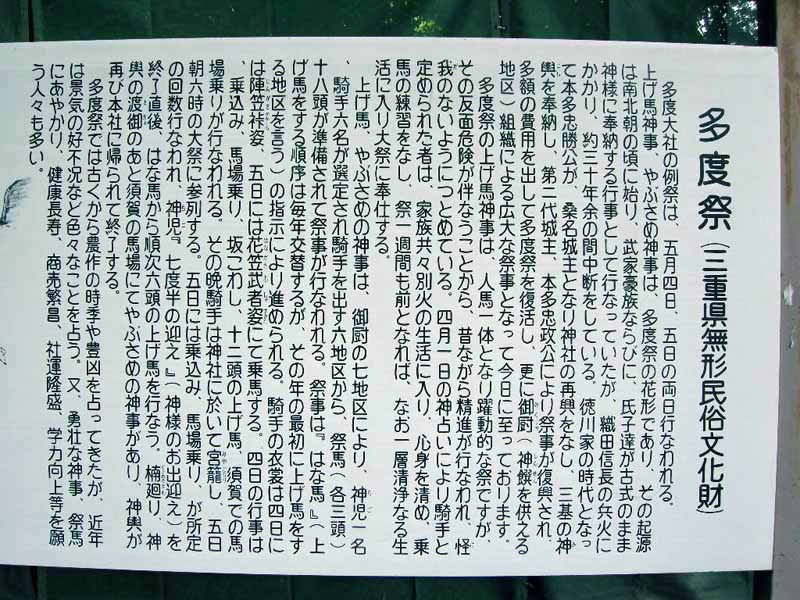 多度祭（三重県無形民俗文化財）
多度大社の例祭は、五月四日、五日の両日行なわれる。
上げ馬神事、やぶさめ神事は、多度祭の花形であり、その起源
は南北朝の頃に始り、武家豪族ならびに、氏子達が古式のまま
神様に奉納する行事として行なっていたが、織田信長の兵火に
かかり、約三十年余の間中断をしている。徳川家の時代となっ
て本多忠勝公が、桑名城主となり神社の再興をなし、三基の神
輿を奉納し、第二代城主、本多忠政公により祭事が復興され、
多額の費用を出して多度祭を復活し、更に御厨（神饌を供える
地区）組織による広大な祭事となって今日に至っております。
多度祭の上げ馬神事は、人馬一体となり躍動的な祭ですが、
その反面危険が伴なうことから、昔ながら精進が行なわれ、怪
我のないようにつとめている。四月一日の神占いにより騎手と
定められた者は、家族共々別火の生活に入り、心身を清め、乗
馬の練習をなし、祭一週間も前となれば、なお一層清浄なる生
活に入り大祭に奉仕する。
上げ馬、やぶさめの神事は、御厨の七地区により、神児一名
、騎手六名が選定され騎手を出す六地区から、祭馬（各三頭）
十八頭が準備されて祭事が行なわれる。祭事は『はな馬』（上
げ馬をする順序は毎年交替するが、その年の最初に上げ馬をす
る地区を言う）の指示により進められる。騎手の衣裳は四日に
は陣笠裃姿、五日には花笠武者姿にて乗馬する。四日の行事は
、乗込み、馬場乗り、坂こわし、十二頭の上げ馬、須賀での馬
場乗りが行なわれる。その晩騎手は神社に於いて宮籠し、五日
朝六時の大祭に参列する。五日には乗込み、馬場乗り、が所定
の回数行なわれ、神児『七度半の迎え』（神様のお出迎え）を
終了直後、はな馬から順次六頭の上げ馬を行なう。楠廻り、神
輿の渡御のあと須賀の馬場にてやぶさめの神事があり、神輿が
再び本社に帰られて終了する。
多度祭では古くから農作の時季や豊凶を占ってきたが、近年
は景気の好不況など色々なことを占う。又、勇壮な神事、祭馬
にあやかり、健康長寿、商売繁昌、社運隆盛、学力向上等を願
う人々も多い。